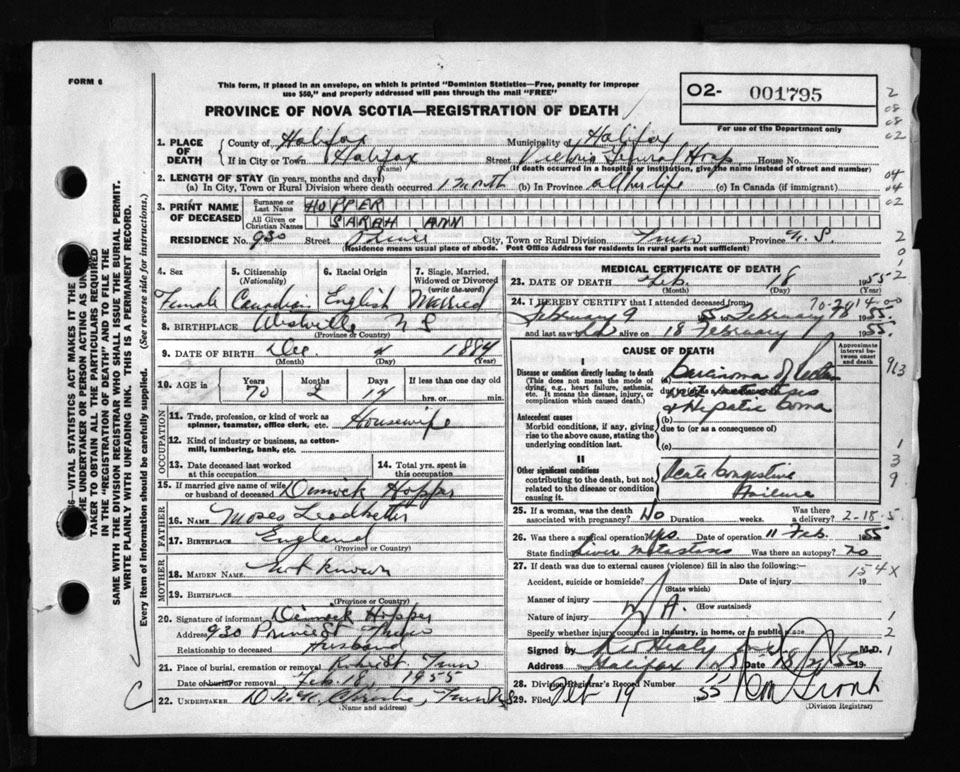 FORM 6
This form, if placed in an envelope, on which is printed "Dominion Statistics—Free, penalty for improper
use $50," and properly addressed will pass through the mail "FREE"
PROVINCE OF NOVA SCOTIA—REGISTRATION OF DEATH
O2- 001795
For use of the Department only
1. PLACE OF DEATH
County of Halifax Municipality of Halifax
If in City or Town Halifax Street Victoria General Hosp House No.
(Name) (If death occurred in a hospital or institution, give the name instead of street and number)
2. LENGTH OF STAY (in years, months and days)
(a) In City, Town or Rural Division where death occurred 1 month (b) In Province all her life (c) In Canada (if immigrant)
3. PRINT NAME OF DECEASED
Surname or Last Name HOPPER
All Given or Christian Names SARAH ANN
RESIDENCE No. 930 Street Prince City, Town or Rural Division Truro Province N. S.
Residence means usual place of abode. Post Office Address for residents in rural parts not sufficient)
4. Sex Female
5. Citizenship (Nationality) Canadian
6. Racial Origin English
7. Single, Married, Widowed or Divorced (write the word) Married
8. BIRTHPLACE N S
(Province or Country)
9. DATE OF BIRTH Dec. 1884
(Month) (Day) (Year)
10. AGE Years 70 Months 2 Days If less than one day old hrs. or min.
OCCUPATION
11. Trade, profession, or kind of work as spinner, teamster, office clerk, etc. Housewife
12. Kind of industry or business, as cotton-mill, lumbering, bank, etc.
13. Date deceased last worked at this occupation
14. Total yrs. spent in this occupation
15. If married give name of wife or husband of deceased Dimick Hopper
FATHER
16. Name Moses Leadbetter
17. BIRTHPLACE England
(Province or Country)
MOTHER
18. MAIDEN NAME Not known
19. BIRTHPLACE
(Province or Country)
20. Signature of informant Dimick Hopper
Address 930 Prince St Truro
Relationship to deceased Husband
21. Place of burial, cremation or removal Truro
Date of burial or removal Feb. 18, 1955
22. UNDERTAKER Truro N S
(Name and address)
MEDICAL CERTIFICATE OF DEATH
23. DATE OF DEATH Feb. 18 1955
(Month) (Day)
24. I HEREBY CERTIFY that I attended deceased from
February 9 55 to February 18 1955
and last saw alive on 18 February 1955
CAUSE OF DEATH
Approximate interval between onset and death
I
Disease or condition directly leading to death
(This does not mean the mode of dying, e.g., heart failure, asthenia, etc. It means the disease, injury, or complication which caused death.)
(a) Carcinoma of
due to
& Hepatic Coma
Antecedent causes
Morbid conditions, if any, giving rise to the above cause, stating the underlying condition last.
(b)
due to (or as a consequence of)
II
Other significant conditions
contributing to the death, but not related to the disease or condition causing it.
Acute Congestive
Failure
25. If a woman, was the death associated with pregnancy? No Duration weeks. Was there a delivery?
2-18-5
26. Was there a surgical operation? Yes Date of operation 11 Feb. 1955
State finding Liver metastases Was there an autopsy? No
27. If death was due to external causes (violence) fill in also the following:
154X
Accident, suicide or homicide? Date of injury 19
(State which)
Manner of injury
(How sustained)
N. A.
Nature of injury
Specify whether injury occurred in industry, in home, or in public place
Signed by Healy M.D.
Address Halifax N S Date 18/2/55 19
28. Division Registrar's Record Number
29. Filed Feb 19 1955
(Division Registrar)
6—VITAL STATISTICS ACT MAKES IT THE
THE UNDERTAKER OR PERSON ACTING AS UNDER-
TAKER TO OBTAIN ALL THE PARTICULARS REQUIRED
IN THE "REGISTRATION OF DEATH" AND TO FILE THE
SAME WITH THE DIVISION REGISTRAR WHO SHALL ISSUE THE BURIAL PERMIT.
WRITE PLAINLY WITH UNFADING INK. THIS IS A PERMANENT RECORD.
Every item of information should be carefully supplied. (See reverse side for instructions.)